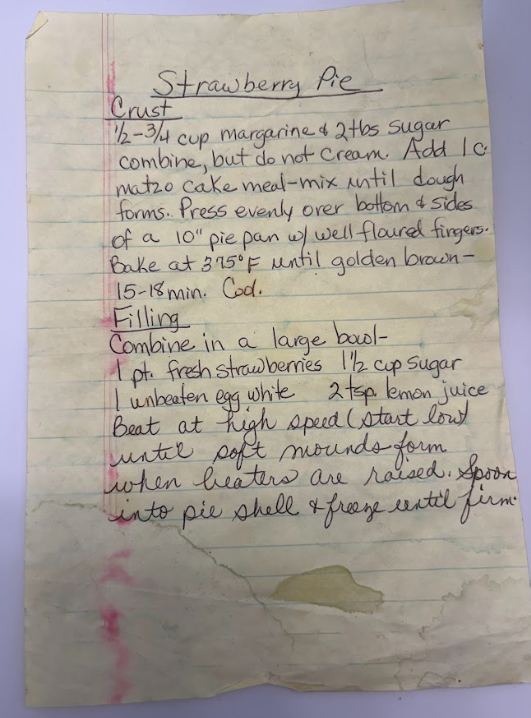 Strawberry Pie
Crust
1/2-3/4 cup margarine & 2 tbs sugar
combine, but do not cream. Add 1 c.
matzo cake meal-mix until dough
forms. Press evenly over bottom & sides
of a 10" pie pan w/ well floured fingers.
Bake at 375°F until golden brown-
15-18 min. Cool.
Filling
Combine in a large bowl-
1 pt. fresh strawberries 1 1/2 cup sugar
1 unbeaten egg white 2 tsp. lemon juice
Beat at high speed (start low)
until soft mounds form
when beaters are raised. Spoon
into pie shell & freeze until firm.